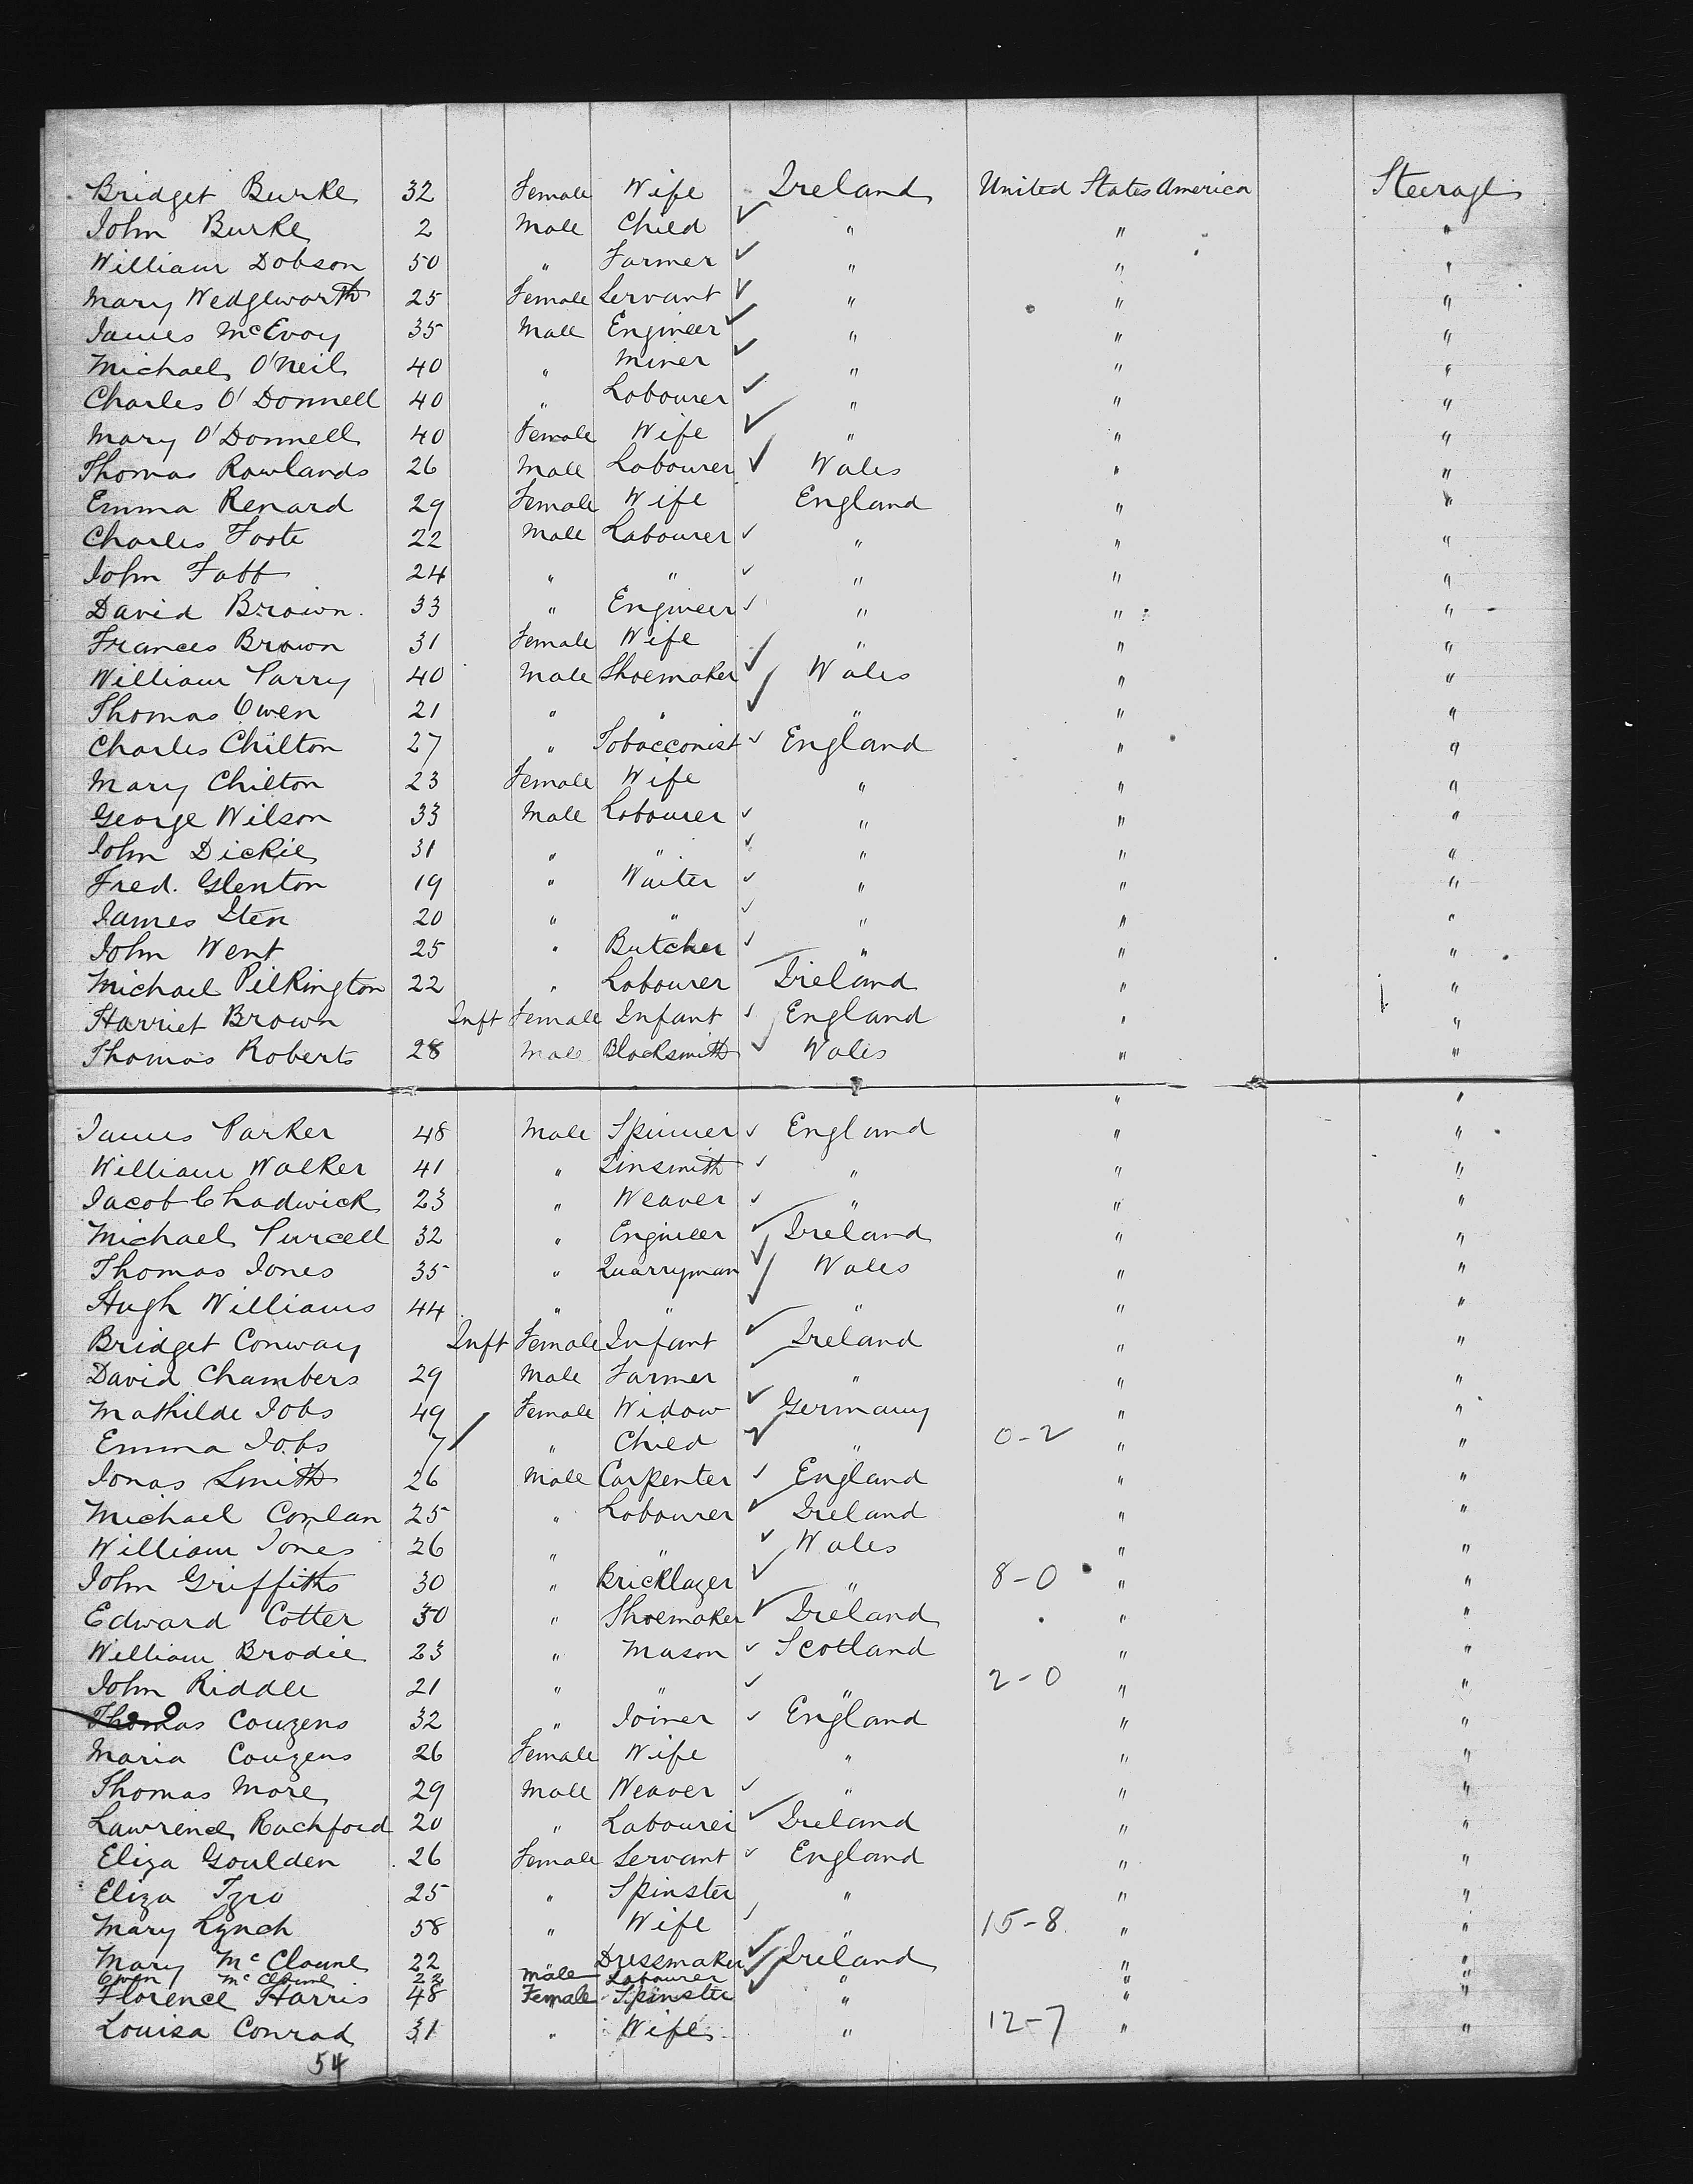 Bridget Burke 32 Female Wife Ireland United States America Steerage
John Burke 2 Male Child " " "
William Dobson 50 " Farmer " " "
Mary Wedgeworth 25 Female Servant " " "
James McEvoy 35 Male Engineer " " "
Michael O'Neil 40 " Miner " " "
Charles O'Donnell 40 " Labourer " " "
Mary O'Donnell 40 Female Wife " " "
Thomas Rowlands 26 Male Labourer Wales " "
Emma Renard 29 Female Wife England " "
Charles Foote 22 Male Labourer " " "
John Fabb 24 " " " " "
David Brown. 33 " Engineer " " "
Frances Brown 31 Female Wife " " "
William Parry 40 Male Shoemaker Wales " "
Thomas Owen 21 " " " " "
Charles Chilton 27 " Tobacconist England " "
Mary Chilton 23 Female Wife " " "
George Wilson 33 Male Labourer " " "
John Dickie 31 " " " " "
Fred. Glenton 19 " Waiter " " "
James Iten 20 " " " " "
John Went 25 " Butcher " " "
Michael Pilkington 22 " Labourer Ireland " "
Harriet Brown Inft Female Infant England " "
Thomas Roberts 28 Male Blacksmith Wales " "
" "
James Parker 48 Male Spinner England " "
William Walker 41 " Tinsmith " " "
Jacob Chadwick 23 " Weaver " " "
Michael Purcell 32 " Engineer Ireland " "
Thomas Jones 35 " Quarryman Wales " "
Hugh Williams 44 " " " " "
Bridget Conway Inft Female Infant Ireland " "
David Chambers 29 Male Farmer " " "
Mathilde Jobs 49 Female Widow Germany " "
Emma Jobs 7 " Child " 0-2 " "
Jonas Smith 26 Male Carpenter England " "
Michael Conlan 25 " Labourer Ireland " "
William Jones 26 " " Wales " "
John Griffiths 30 " Bricklayer " 8-0 " "
Edward Cotter 30 " Shoemaker Ireland " "
William Brodie 23 " Mason Scotland " "
John Riddle 21 " " " 2-0 " "
Thomas Couzens 32 " Joiner England " "
Maria Couzens 26 Female Wife " " "
Thomas More 29 Male Weaver " " "
Lawrence Rochford 20 " Labourer Ireland " "
Eliza Goulden 26 Female Servant England " "
Eliza Tyro 25 " Spinster " " "
Mary Lynch 58 " Wife " 15-8 " "
Mary McCloune 22 Dressmaker Ireland " "
Owen McCloune 22 Male Labourer " " "
Florence Harris 48 Female Spinster " " "
Louisa Conrad 31 " Wife " 12-7 " "
54